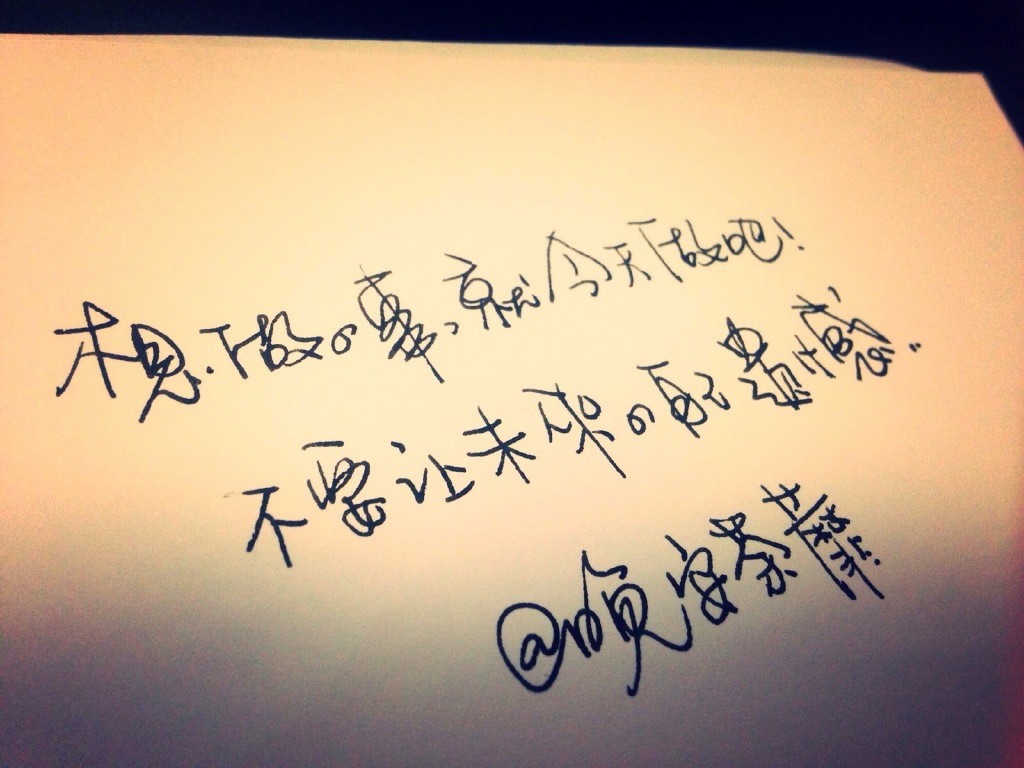 想做的事，就今天做吧！
不要让未来的自己遗憾..
@安荼蘼